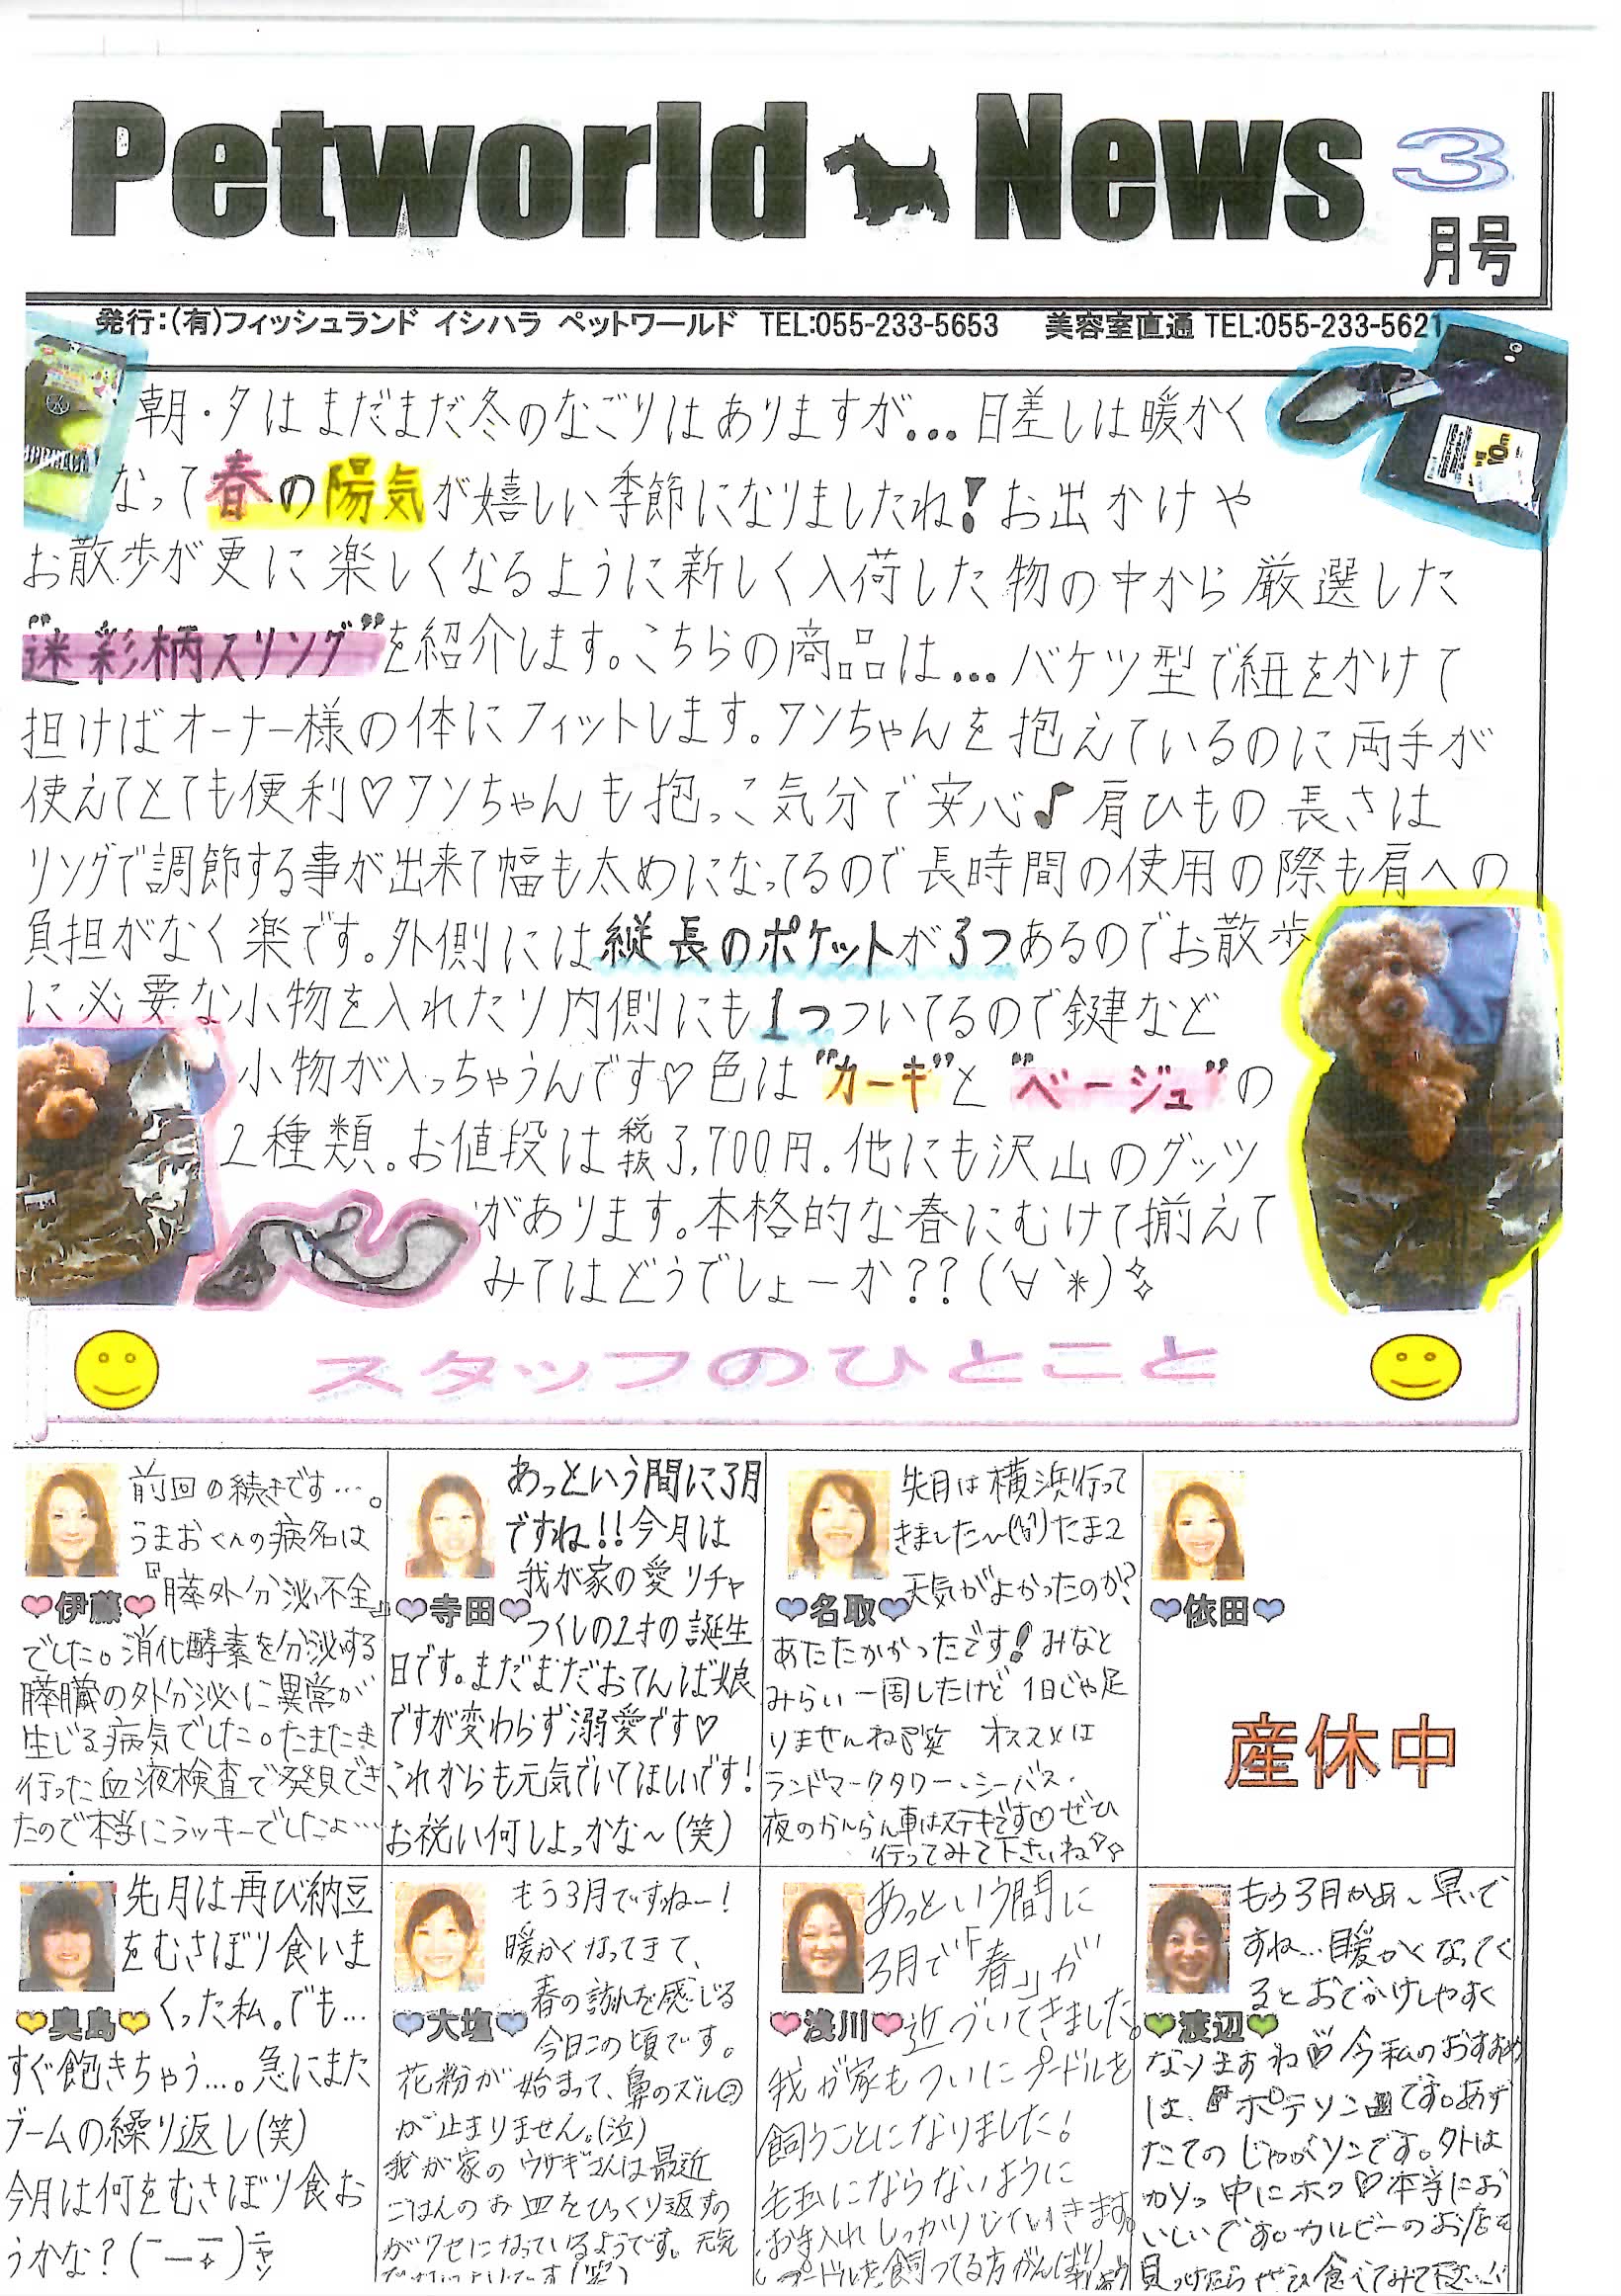 Petworld News 3
月号
発行:(有)フィッシュランド イシハラ ペットワールド TEL:055-233-5653 美容室直通 TEL:055-233-5621
朝・夕はまだまだ冬のなごりはありますが…日差しは暖かく
なって春の陽気が嬉しい季節になりましたね!お出かけや
お散歩が更に楽しくなるように新しく入荷した物の中から厳選した
"迷彩柄スリング"を紹介します。こちらの商品は…バケツ型で紐をかけて
担けばオーナー様の体にフィットします。ワンちゃんを抱えているのに両手が
使えてとても便利♡ワンちゃんも抱っこ気分で安心♪肩ひもの長さは
リングで調節する事が出来て幅も太めになってるので長時間の使用の際も肩への
負担がなく楽です。外側には縦長のポケットが3つあるのでお散歩
に必要な小物を入れたり内側にも1つついてるので鍵など
小物が入っちゃうんです♡色は"カーキ"と"ベージュ"の
2種類。お値段は税抜3,700円.他にも沢山のグッツ
があります。本格的な春にむけて揃えて
みてはどうでしょーか??(´∀`*)✧
スタッフのひとこと
前回の続きです…。
うまおくんの病名は
『膵外分泌不全』
♥伊藤♥
でした。消化酵素を分泌する
膵臓の外分泌に異常が
生じる病気でした。たまたま
行った血液検査で発見でき
たので本当にラッキーでしたよ…
あっという間に3月
ですね!!今月は
我が家の愛リチャ
♥寺田♥
つくしの2才の誕生
日です。まだまだおてんば娘
ですが変わらず溺愛です♡
これからも元気でいてほしいです!
お祝い何しよっかな〜(笑)
先月は横浜行って
きました〜(^^)たまたま
天気がよかったのか?
♥名取♥
あたたかかったです!みなと
みらい一周したけど1日じゃ足
りませんね笑 オススメは
ランドマークタワー・シーバス・
夜のかんらん車はステキです♡ぜひ
行ってみて下さいね
♥依田♥
産休中
先月は再び納豆
をむさぼり食いま
くった私。でも…
♥奥島♥
すぐ飽きちゃう…。急にまた
ブームの繰り返し(笑)
今月は何をむさぼり食お
うかな?(￣ー￣)ニヤッ
もう3月ですねー!
暖かくなってきて、
春の訪れを感じる
♥大塩♥
今日この頃です。
花粉が始まって、鼻のズルズル
が止まりません。(泣)
我が家のウサギさんは最近
ごはんのお皿をひっくり返すの
がクセになっているようです。元気
あっという間に
3月で『春』が
♥浅川♥
近づいてきました。
我が家もついにプードルを
飼うことになりました!
毛玉にならないように
お手入れしっかりしていきます。
プードルを飼ってる方がんばりましょう
もう3月かぁ〜早いで
すね…暖かくなってく
るとおでかけしやすく
♥渡辺♥
なりますね♡今私のおすすめ
は、『ポテリン』です。あげ
たてのじゃがリンです。外は
カリッ中はホク♡本当にお
いしいです。カルビーのお店を
見つけたらぜひ食べてみて下さい